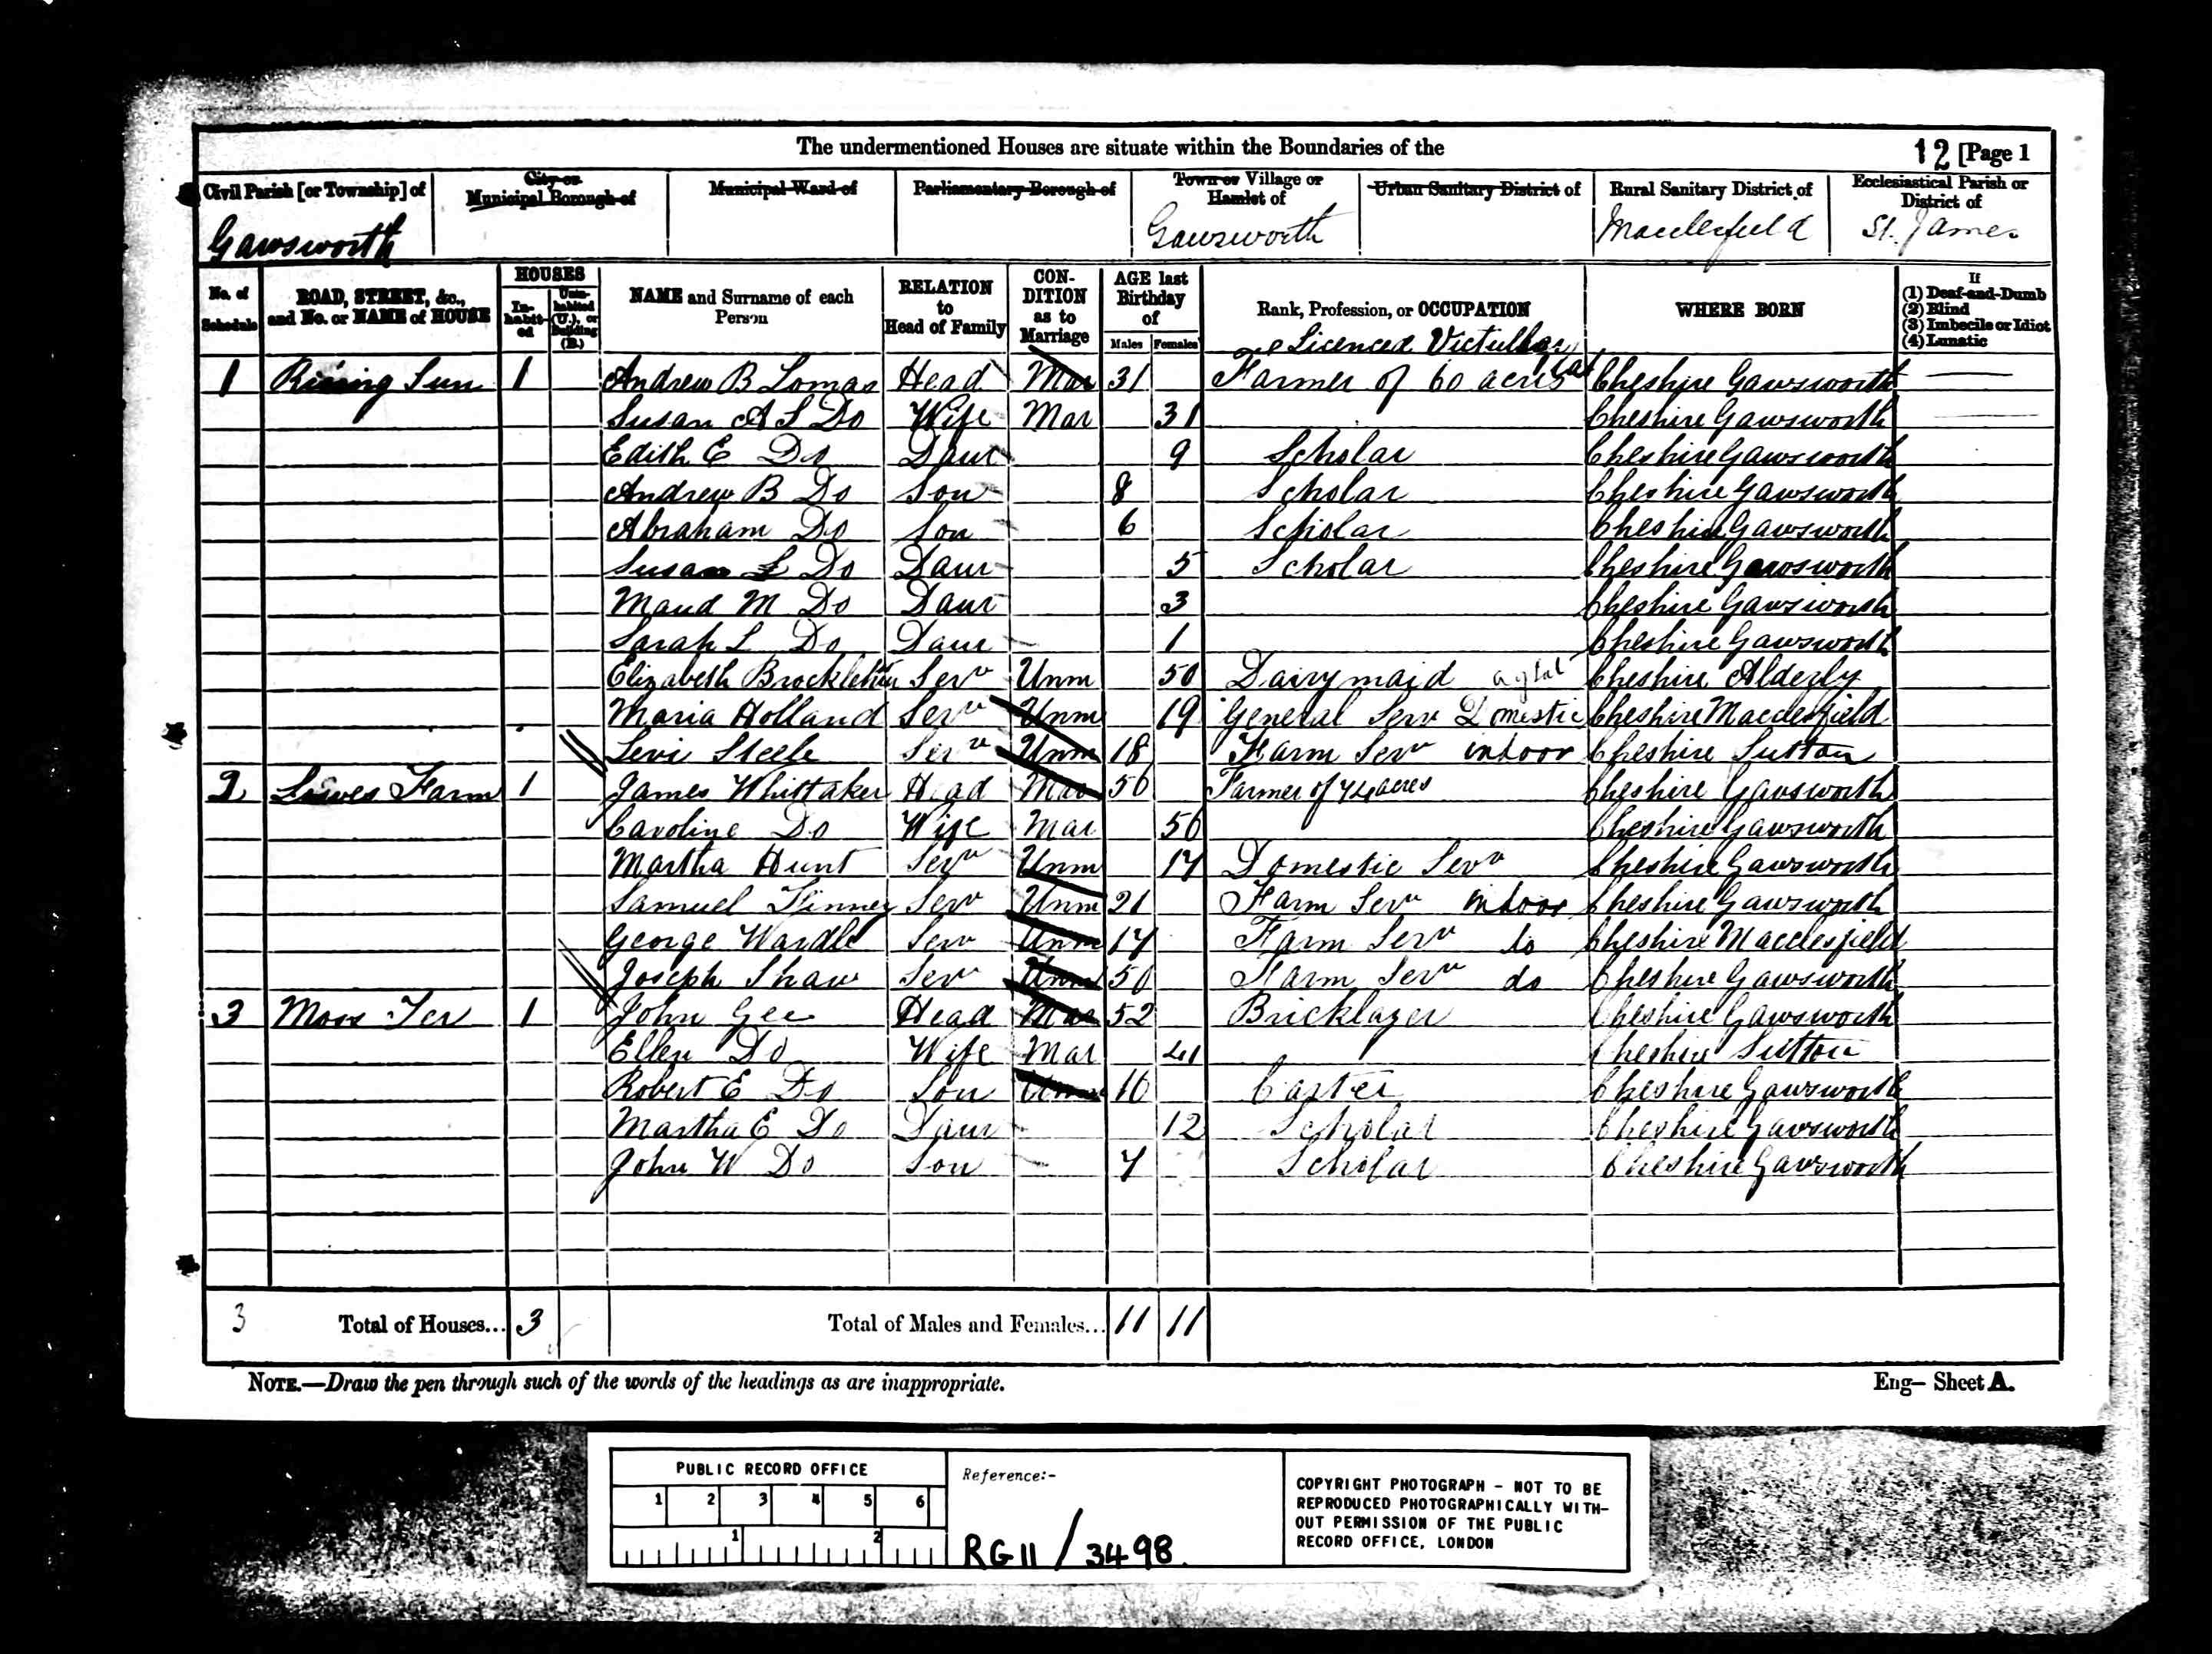 The undermentioned Houses are situate within the Boundaries of the
12 [Page 1
Civil Parish [or Township] of
City or Municipal Borough of
Municipal Ward of
Parliamentary Borough of
Town or Village or Hamlet of
Urban Sanitary District of
Rural Sanitary District of
Ecclesiastical Parish or District of
Gawsworth Gawsworth Macclesfield St. James
No. of Schedule
ROAD, STREET, &c., and No. or NAME of HOUSE
HOUSES
Inhabited
Uninhabited (U.), or Building (B.)
NAME and Surname of each Person
RELATION to Head of Family
CONDITION as to Marriage
AGE last Birthday of
Males Females
Rank, Profession, or OCCUPATION
WHERE BORN
If
(1) Deaf-and-Dumb
(2) Blind
(3) Imbecile or Idiot
(4) Lunatic
Licenced Victullar
1 Rising Sun 1 Andrew B Lomas Head Mar 31 Farmer of 60 acres Cheshire Gawsworth
Susan A S Do Wife Mar 31 Cheshire Gawsworth
Edith E Do Daur 9 Scholar Cheshire Gawsworth
Andrew B Do Son 8 Scholar Cheshire Gawsworth
Abraham Do Son 6 Scholar Cheshire Gawsworth
Susan L Do Daur 5 Scholar Cheshire Gawsworth
Maud M Do Daur 3 Cheshire Gawsworth
Sarah L Do Daur 1 Cheshire Gawsworth
Elizabeth Serv Unm 50 Dairymaid Cheshire Alderly
Maria Holland Serv Unm 19 General Serv Domestic Cheshire Macclesfield
Levi Steele Serv Unm 18 Farm Serv indoor Cheshire Sutton
2 Farm 1 James Whittaker Head Mar 56 Farmer of 74 acres Cheshire Gawsworth
Caroline Do Wife Mar 56 Cheshire Gawsworth
Martha Hunt Serv Unm 17 Domestic Serv Cheshire Gawsworth
Samuel Serv Unm 21 Farm Serv indoor Cheshire Gawsworth
George Wardle Serv Unm 17 Farm Serv do Cheshire Macclesfield
Joseph Shaw Serv Unm 50 Farm Serv do Cheshire Gawsworth
3 Moss Ter 1 John Gee Head Mar 52 Bricklayer Cheshire Gawsworth
Ellen Do Wife Mar 41 Cheshire Sutton
Robert E Do Son Unm 16 Carter Cheshire Gawsworth
Martha E Do Daur 12 Scholar Cheshire Gawsworth
John W Do Son 7 Scholar Cheshire Gawsworth
3 Total of Houses... 3 Total of Males and Females... 11 11
NOTE.—Draw the pen through such of the words of the headings as are inappropriate.
Eng— Sheet A.
PUBLIC RECORD OFFICE
1 2 3 4 5 6
1 2
Reference:-
RG11/3498
COPYRIGHT PHOTOGRAPH - NOT TO BE
REPRODUCED PHOTOGRAPHICALLY WITH-
OUT PERMISSION OF THE PUBLIC
RECORD OFFICE, LONDON